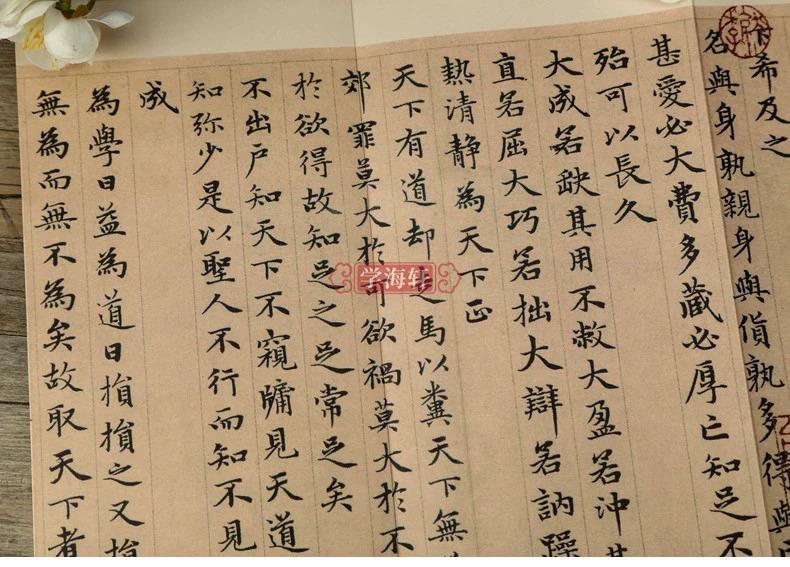 下希及之
名與身孰親身與貨孰多得與
甚愛必大費多藏必厚亡知足不
殆可以長久
大成若缺其用不敝大盈若沖其
直若屈大巧若拙大辯若訥躁
熱清靜為天下正
天下有道却走馬以糞天下無
郊罪莫大於可欲禍莫大於不
於欲得故知足之足常足矣
不出戶知天下不窺牖見天道
知弥少是以聖人不行而知不見
成
為學日益為道日損損之又損
無為而無不為矣故取天下者
学海轩